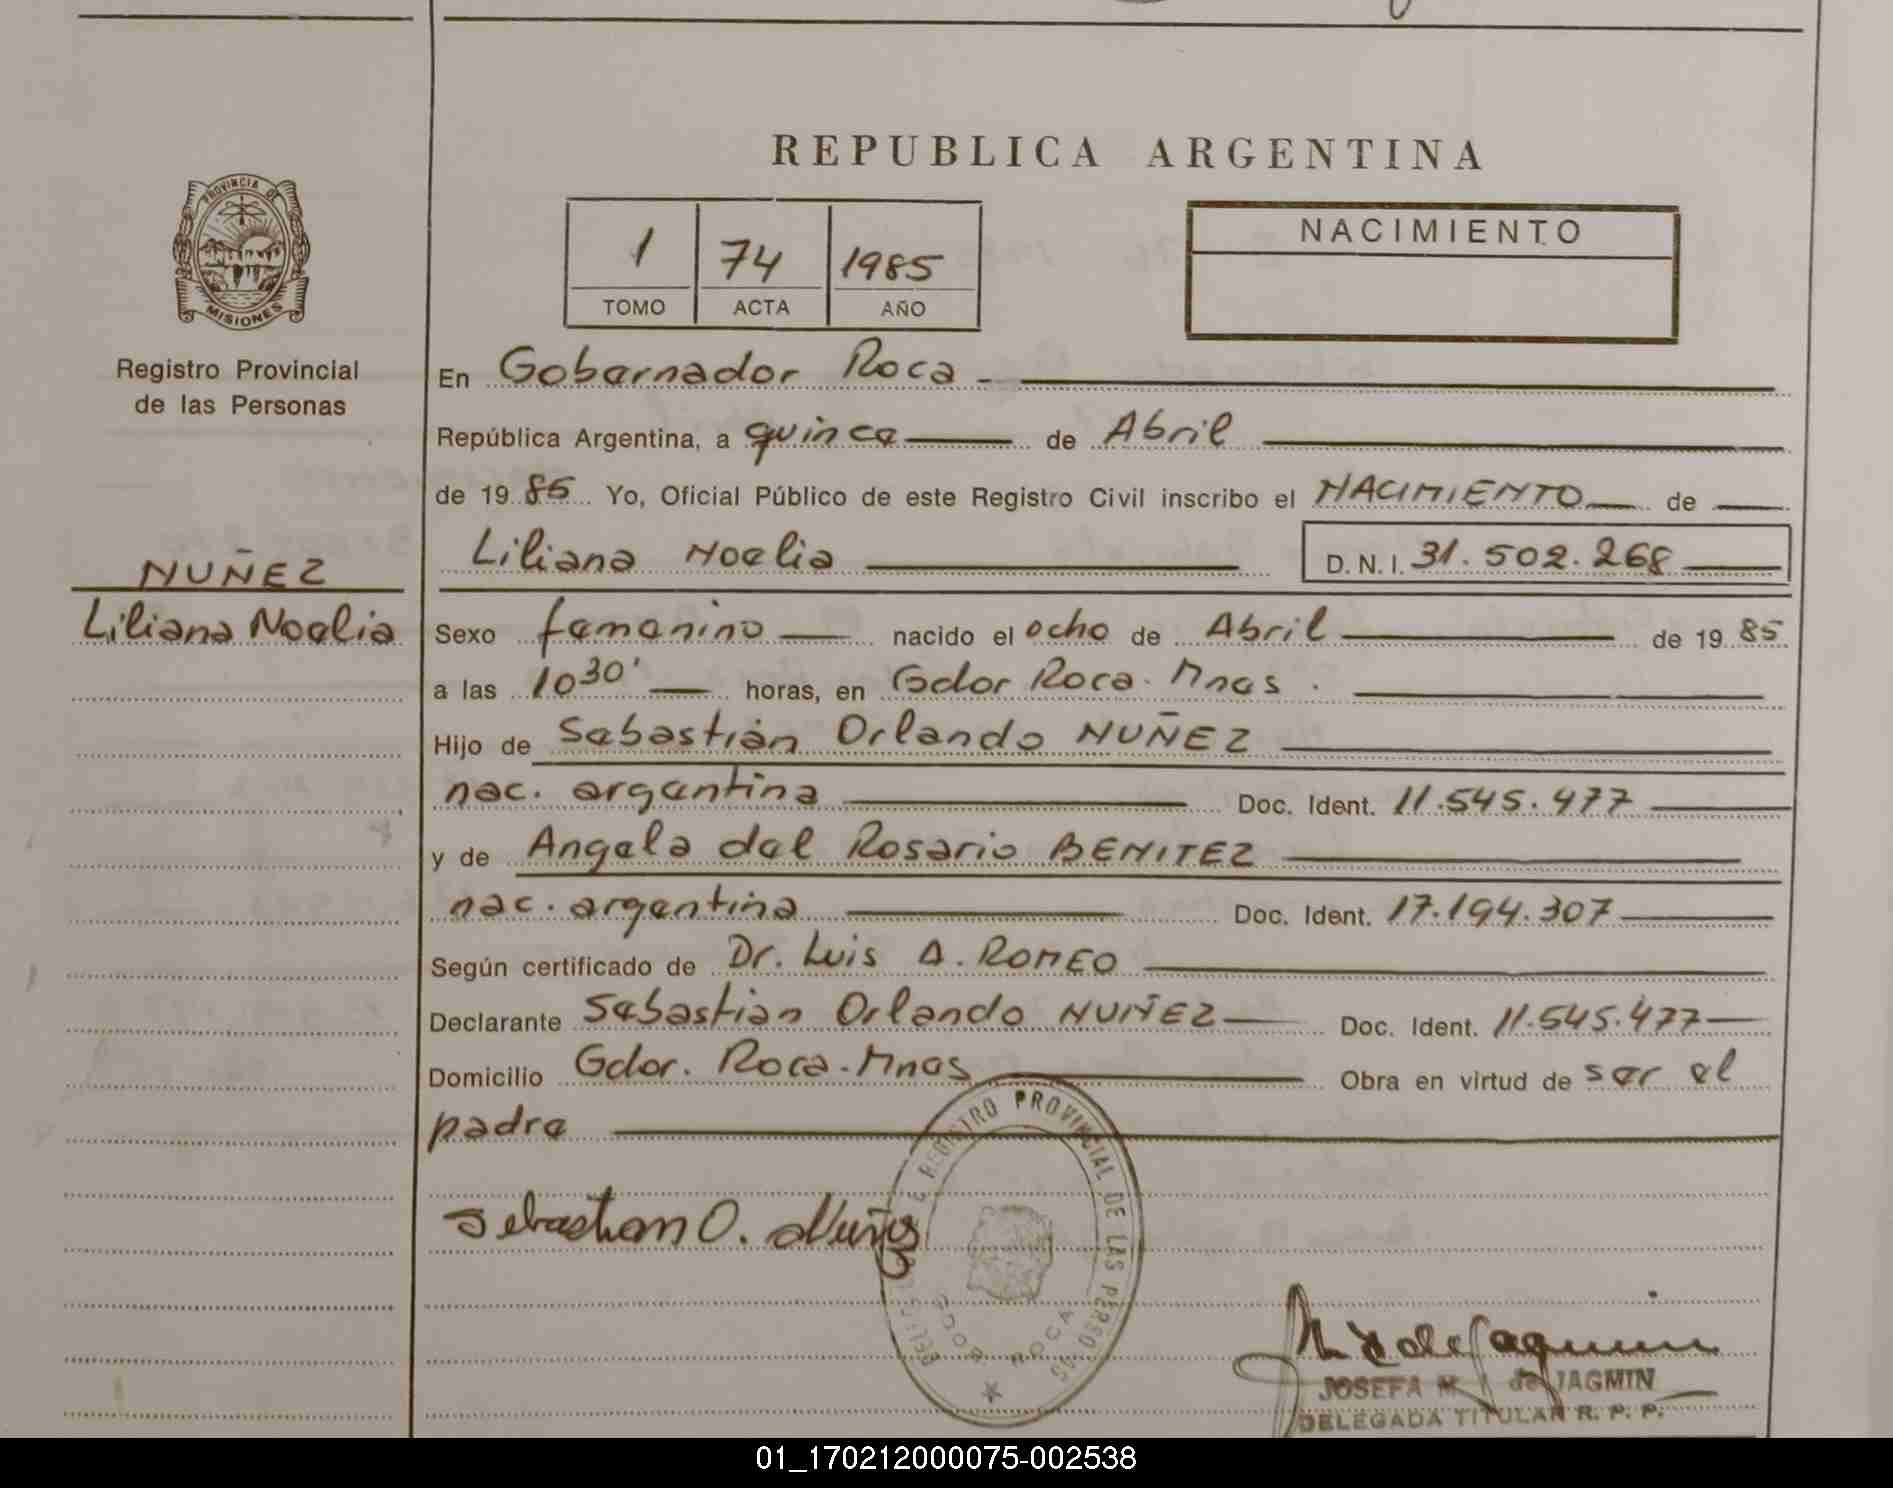 REPUBLICA ARGENTINA
PROVINCIA DE
MISIONES
Registro Provincial
de las Personas
1 74 1985
TOMO ACTA AÑO
NACIMIENTO
En Gobernador Roca -
República Argentina, a quince de Abril
de 19 85 Yo, Oficial Público de este Registro Civil inscribo el NACIMIENTO de
Liliana Noelia D. N. I. 31.502.268
NUÑEZ
Liliana Noelia
Sexo femenino nacido el ocho de Abril de 19 85
a las 10 30' horas, en Gdor Roca. Mnes.
Hijo de Sebastián Orlando NUÑEZ
nac. argentina Doc. Ident. 11.545.477
y de Angela del Rosario BENITEZ
nac. argentina Doc. Ident. 17.194.307
Según certificado de Dr. Luis A. ROMEO
Declarante Sebastián Orlando NUÑEZ Doc. Ident. 11.545.477
Domicilio Gdor. Roca-Mnes Obra en virtud de ser el
padre
REGISTRO PROVINCIAL DE LAS PERSONAS
GDOR ROCA
Sebastian O. Nuñez
JOSEFA M. de JAGMIN
DELEGADA TITULAR R. P. P.
01_170212000075-002538